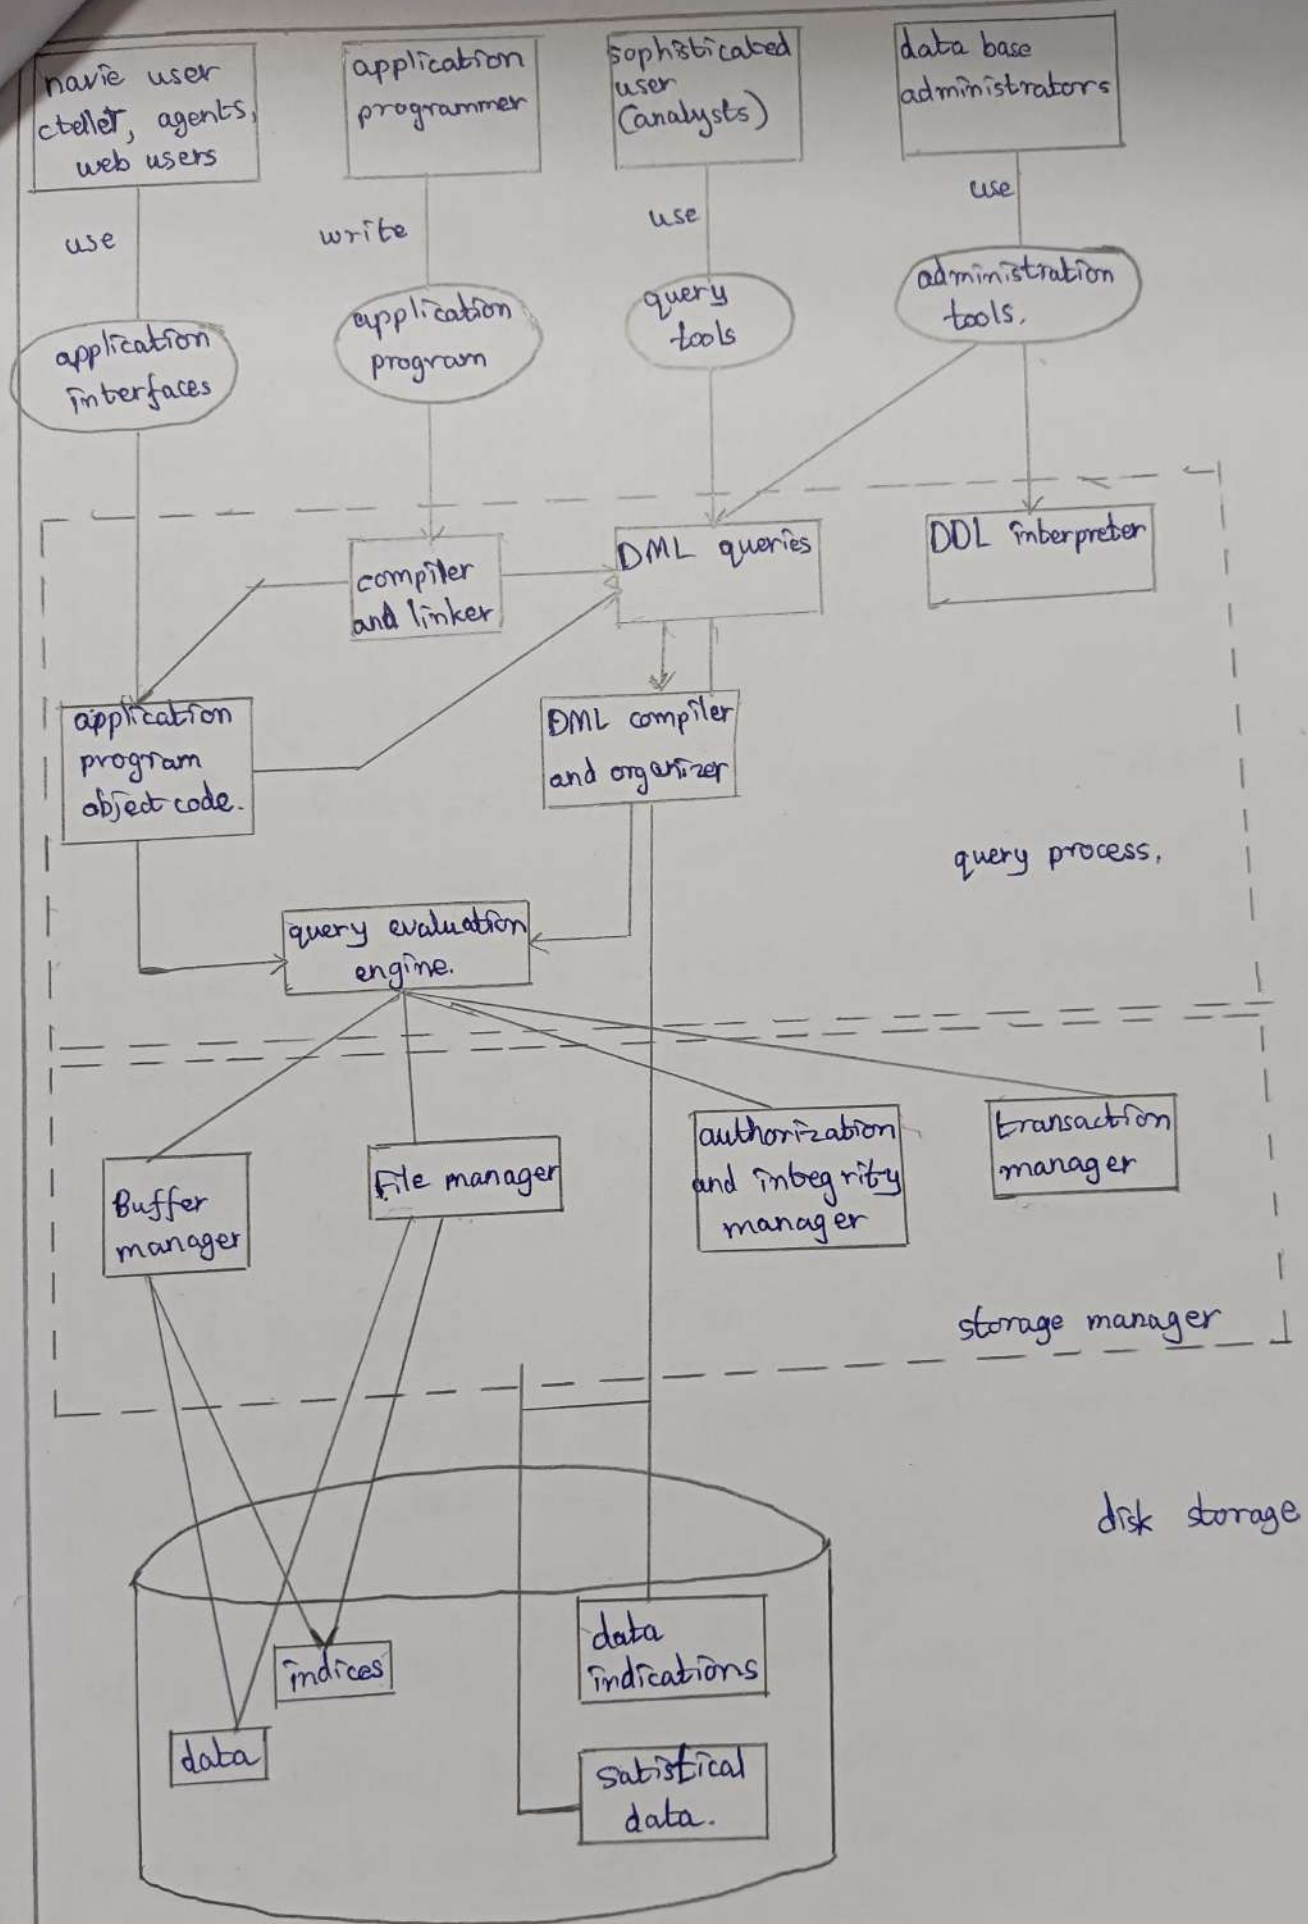 navie user
cteller, agents,
web users
application
programmer
sophisticated
user
(analysts)
data base
administrators
use
write
use
use
application
interfaces
application
program
query
tools
administration
tools.
compiler
and linker
DML queries
DDL interpreter
application
program
object code.
DML compiler
and organizer
query process.
query evaluation
engine.
Buffer
manager
File manager
authorization
and integrity
manager
transaction
manager
storage manager
disk storage
indices
data
data
indications
satistical
data.